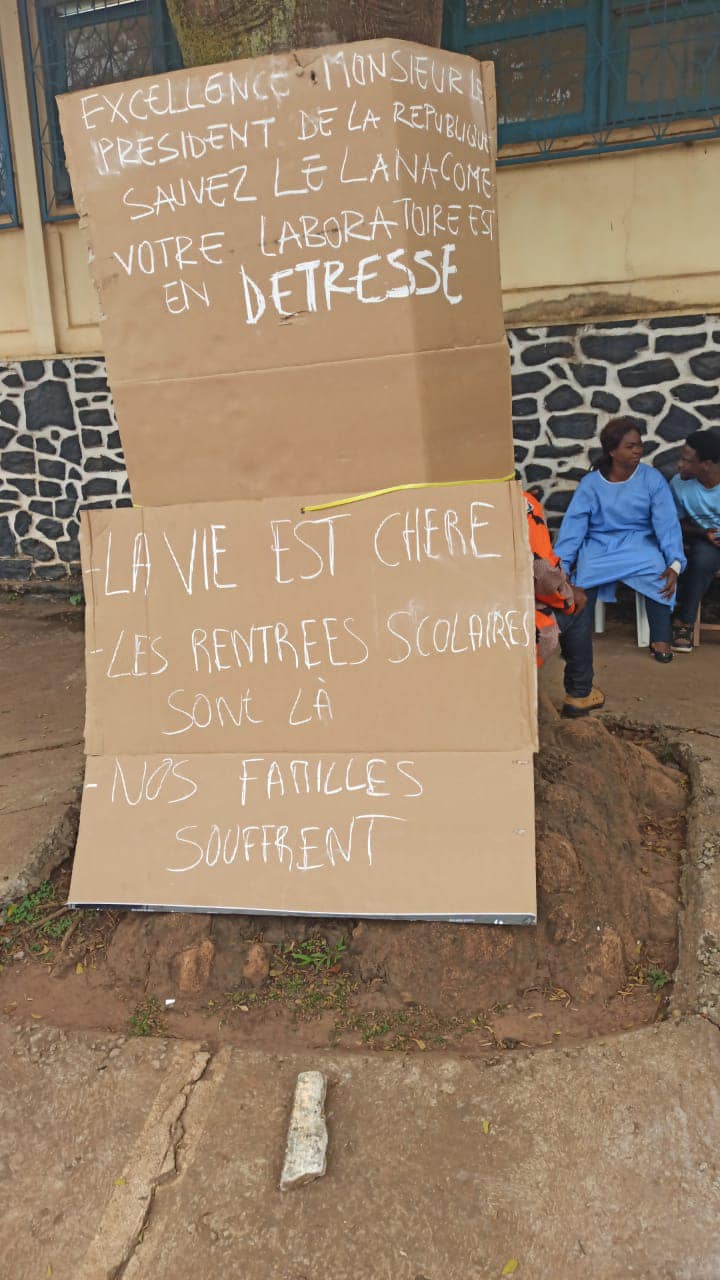 EXCELLENCE MONSIEUR LE
PRESIDENT DE LA REPUBLIQUE
SAUVEZ LE LANACOME
VOTRE LABORATOIRE EST
EN DETRESSE
-LA VIE EST CHERE
-LES RENTREES SCOLAIRES
SONT LÀ
-NOS FAMILLES
SOUFFRENT